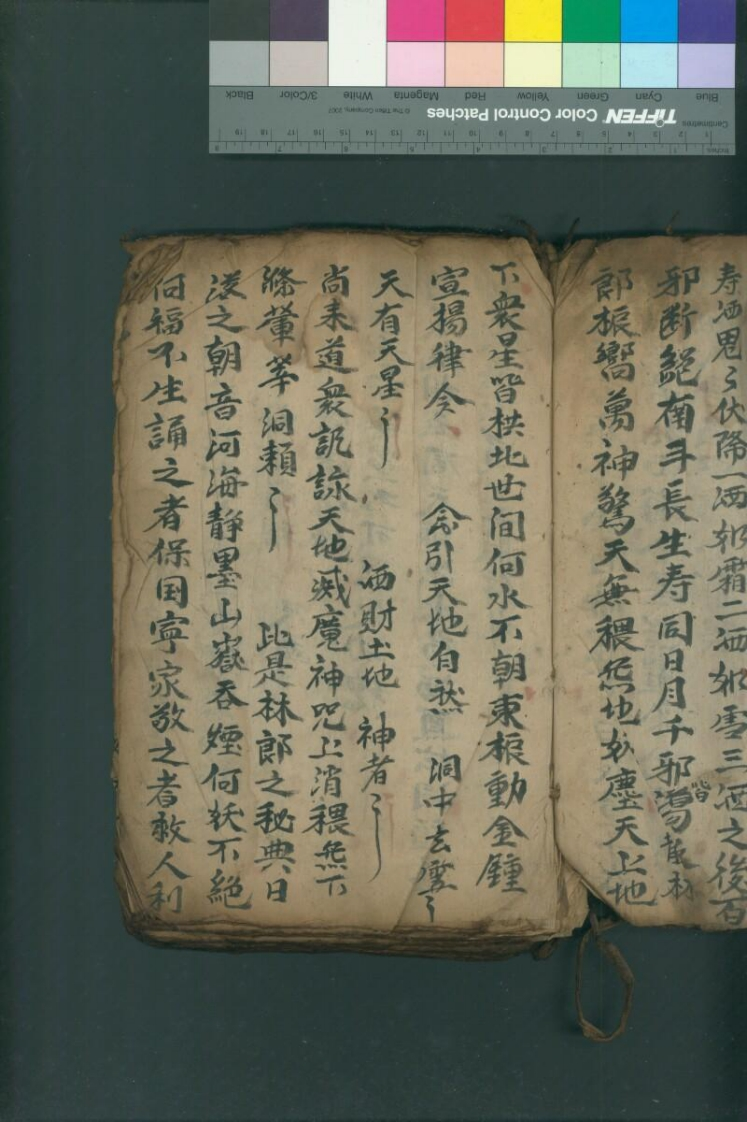 Blue Cyan Green Yellow Red Magenta White 3/Color Black
Centimetres
TIFFEN Color Control Patches © The Tiffen Company, 2007
Inches
寿洒鬼〻伏降一洒如霜二洒如雪三洒之後百
邪断絕南斗長生寿同日月千邪皆蕩
郎振嚮萬神驚天無穢炁地 塵天上地
下衆星皆拱北世间何水不朝東振動金鍾
宣揚律令 念引天地自然 洞中玄虚〻
天有天星〻 洒財土地 神者〻
尚来道衆 詠天地滅魔神咒上消穢炁下
滌葷 洞賴〻 此是林郎之秘典日
淩之朝音河海靜墨山嶽吞煙何妖不絕
何福不生誦之者保国寧家敬之者救人利